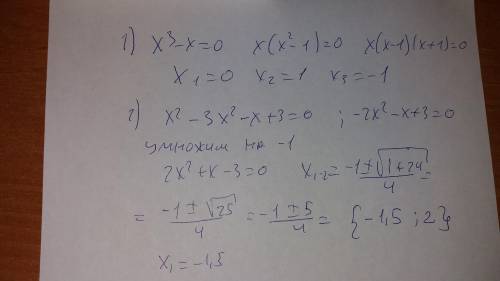 1) x³-x=0 x(x²-1)=0 x(x-1)(x+1)=0
x₁=0 x₂=1 x₃=-1
2) x²-3x²-x+3=0 ; -2x²-x+3=0
умножим на -1
2x²+x-3=0 x₁,₂=(-1±√(1+24))/4=
=(-1±√25)/4=(-1±5)/4={-1,5;2}
x₁=-1,5